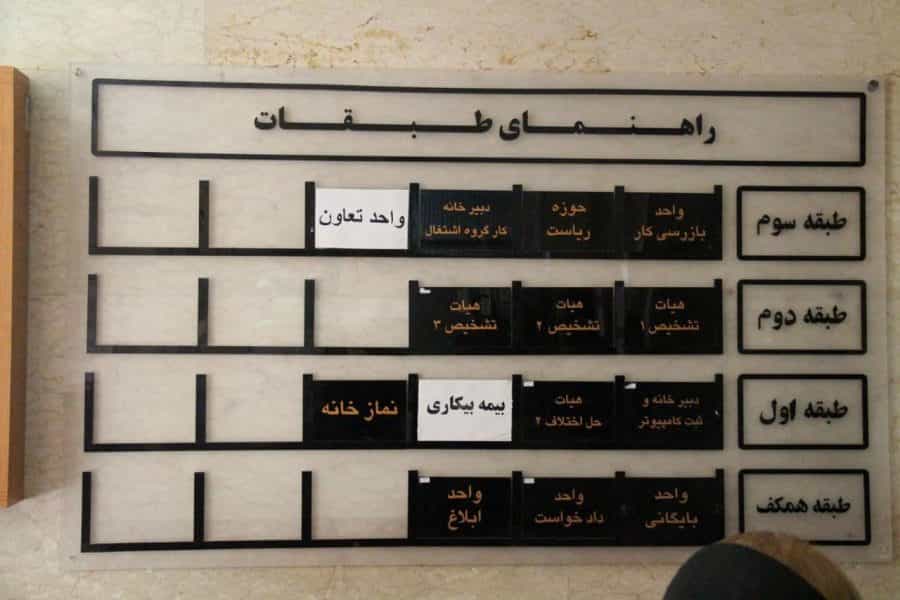 راهنمای طبقات
طبقه سوم
واحد
بازرسی کار
حوزه
ریاست
دبیر خانه
کار گروه اشتغال
واحد تعاون
طبقه دوم
هیات
تشخیص ۱
هیات
تشخیص ۲
هیات
تشخیص ۳
طبقه اول
دبیر خانه و
ثبت کامپیوتر
هیات
حل اختلاف ۲
بیمه بیکاری
نماز خانه
طبقه همکف
واحد
بایگانی
واحد
داد خواست
واحد
ابلاغ